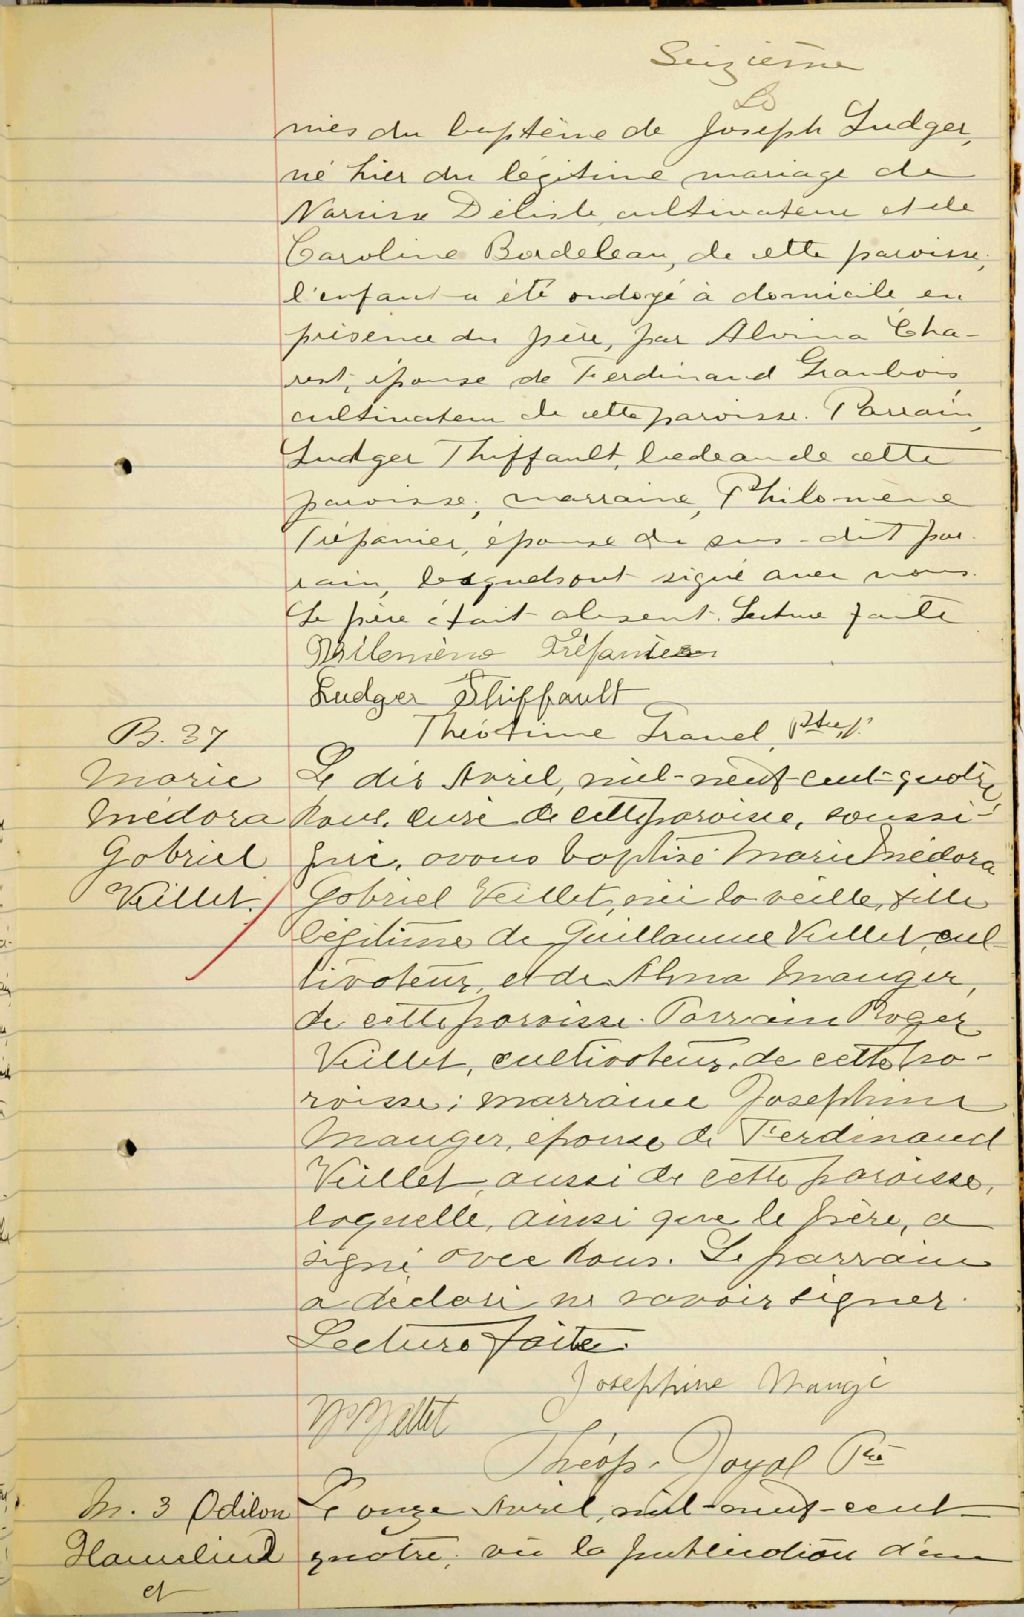 Seizième
nies du baptême de Joseph Ludger,
né hier du légitime mariage de
Narcisse Délisle, cultivateur et de
Caroline Bordeleau, de cette paroisse;
l'enfant a été ondoyé à domicile en
présence du père, par Alvina Cha-
rest, épouse de Ferdinand Granbois,
cultivateur de cette paroisse. Parrain,
Ludger Thiffault, bedeau de cette
paroisse; marraine, Philomène
Trépanier, épouse du sus-dit par-
rain, lesquels ont signé avec nous.
Le père était absent. Lecture faite
Philomène Trépanier
Ludger Thiffault
Théotime Gravel, Ptre
B. 37
Marie
Médora
Gabriel
Veillet.
Le dix Avril, mil-neuf-cent-quatre,
Nous, curé de cette paroisse, soussi-
gné, avons baptisé Marie Médora
Gabriel Veillet, née la veille, fille
légitime de Guillaume Veillet, cul-
tivateur, et de Alma Mauger,
de cette paroisse. Parrain Roger
Veillet, cultivateur, de cette pa-
roisse; marraine Josephine
Mauger, épouse de Ferdinand
Veillet, aussi de cette paroisse,
laquelle, ainsi que le père, a
signé avec nous. Le parrain
a déclaré ne savoir signer.
Lecture faite.
Josephine Maugé
Veillet
Théop. Joyal Ptre
M. 3 Odilon
Hamelin
et
Le onze Avril, mil-neuf-cent-
quatre; vu la publication d'un